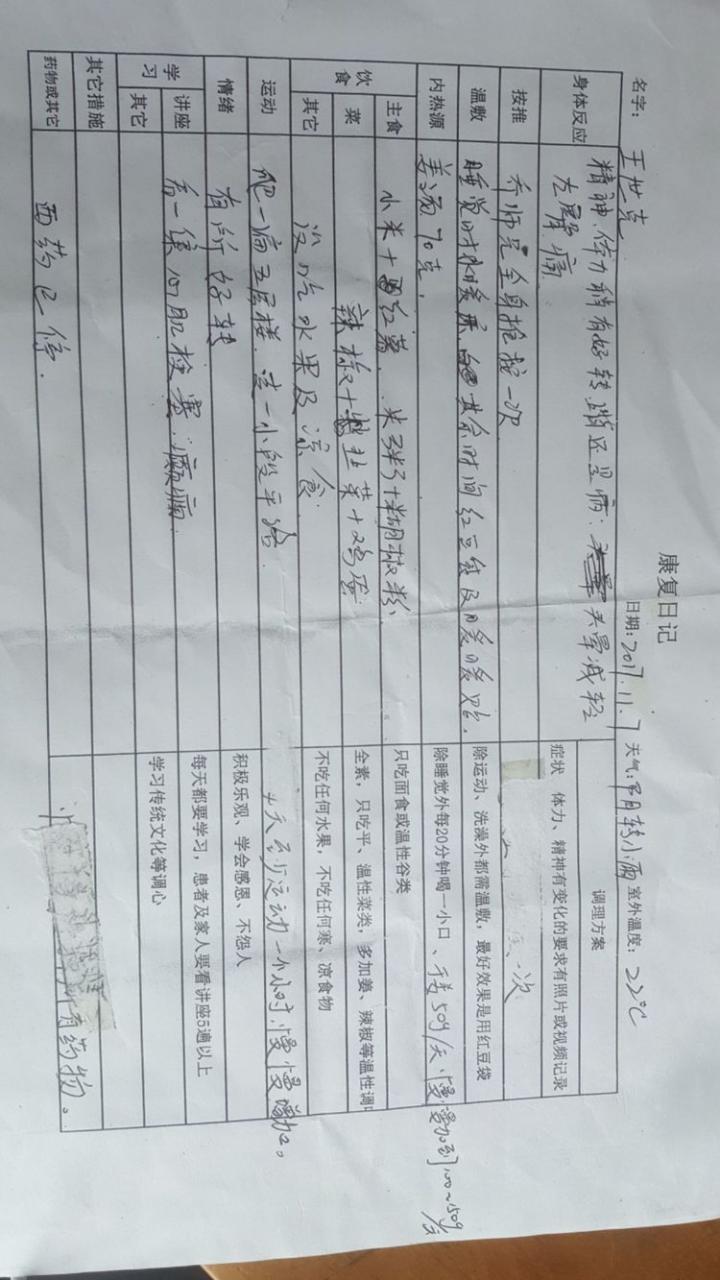 康复日记
名字： 王世克 日期：2017.11.7 天气：阴转小雨 室外温度： 22℃
身体反应 精神、体力稍有好转，
头晕减轻
左 痛
调理方案
症状 体力、精神有变化的要求有照片或视频记录
按推 乔师兄全身推按一次
一次
温敷 睡觉时水暖 其余时间红豆袋及暖暖贴.
除运动、洗澡外都需温敷，最好效果是用红豆袋
内热源 姜汤70克.
除睡觉外每20分钟喝一小口、干姜50g/天.慢慢加到100~150g/天
饮食 主食 小米+红薯. 米 +胡椒粉、
只吃面食或温性谷类
菜 辣椒+韭菜+鸡蛋.
全素，只吃平、温性菜类，多加姜、辣椒等温性调
其它 没吃水果及凉食.
不吃任何水果，不吃任何寒、凉食物
运动 爬一遍五层楼.走一小段平路.
运动一小时.慢慢增加。
情绪 有所好转
积极乐观、学会感恩、不怨人
学习 讲座 看一集心肌梗塞、癫痫.
每天都要学习，患者及家人要看讲座5遍以上
其它
学习传统文化等调心
其它措施
药物或其它 西药已停.
所有药物。